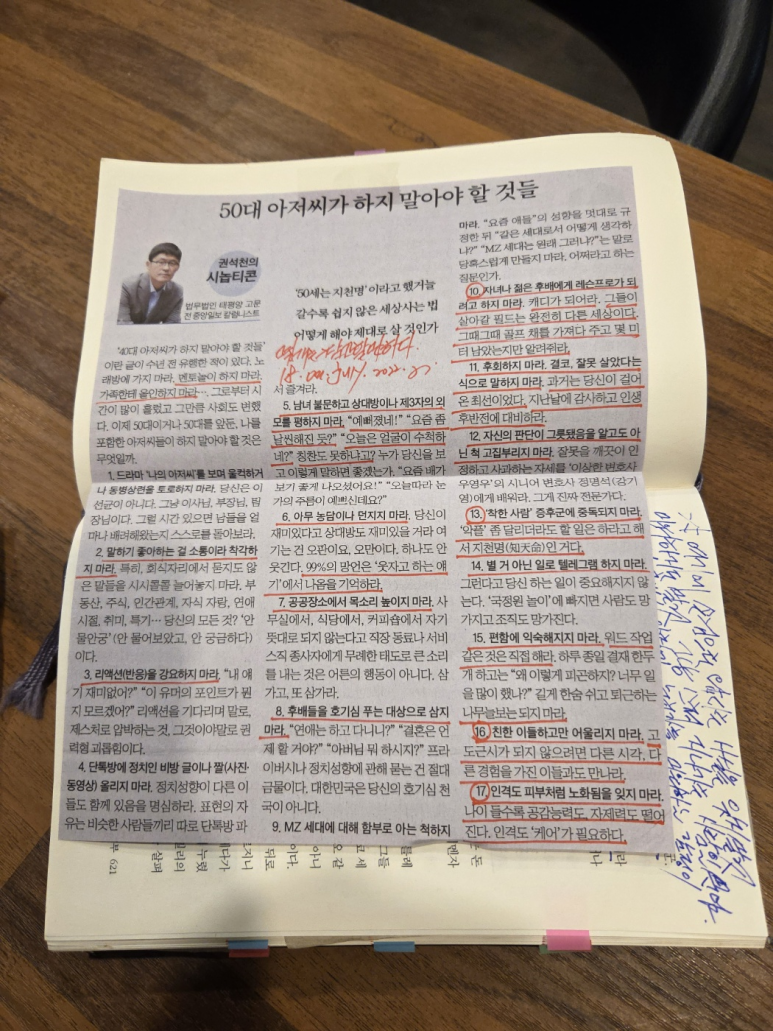 50대 아저씨가 하지 말아야 할 것들
권석천의
시놉티콘
법무법인 태평양 고문
전 중앙일보 칼럼니스트
'50세는 지천명'이라고 했거늘
갈수록 쉽지 않은 세상사는 법
어떻게 해야 제대로 살 것인가
'40대 아저씨가 하지 말아야 할 것들'
이란 글이 수년 전 유행한 적이 있다. 노
래방에 가지 마라, 멘토놀이 하지 마라,
가족한테 올인하지 마라…. 그로부터 시
간이 많이 흘렀고 그만큼 사회도 변했
다. 이제 50대이거나 50대를 앞둔, 나를
포함한 아저씨들이 하지 말아야 할 것은
무엇일까.
1. 드라마 '나의 아저씨'를 보며 울컥하거
나 동병상련을 토로하지 마라. 당신은 이
선균이 아니다. 그냥 이사님, 부장님, 팀
장님이다. 그럴 시간 있으면 남들을 얼
마나 배려해왔는지 스스로를 돌아보라.
2. 말하기 좋아하는 걸 소통이라 착각하
지 마라. 특히, 회식자리에서 묻지도 않
은 말들을 시시콜콜 늘어놓지 마라. 부
동산, 주식, 인간관계, 자식 자랑, 연애
시절, 취미, 특기… 당신의 모든 것? '안
물안궁' (안 물어보았고, 안 궁금하다)
이다.
3. 리액션(반응)을 강요하지 마라. "내 얘
기 재미없어?" "이 유머의 포인트가 뭔
지 모르겠어?" 리액션을 기다리며 말로,
제스처로 압박하는 것, 그것이야말로 권
력형 괴롭힘이다.
4. 단톡방에 정치인 비방 글이나 짤(사진·
동영상) 올리지 마라. 정치성향이 다른 이
들도 함께 있음을 명심하라. 표현의 자
유는 비슷한 사람들끼리 따로 단톡방 파
18. Jul. 2022.
서 즐겨라.
5. 남녀 불문하고 상대방이나 제3자의 외
모를 평하지 마라. "예뻐졌네!" "요즘 좀
날씬해진 듯?" "오늘은 얼굴이 수척하
네?" 칭찬도 못하냐고? 누가 당신을 보
고 이렇게 말하면 좋겠는가. "요즘 배가
보기 좋게 나오셨어요!" "오늘따라 눈
가의 주름이 예쁘신데요?"
6. 아무 농담이나 던지지 마라. 당신이
재미있다고 상대방도 재미있을 거라 여
기는 건 오판이요, 오만이다. 하나도 안
웃긴다. 99%의 망언은 '웃자고 하는 얘
기'에서 나옴을 기억하라.
7. 공공장소에서 목소리 높이지 마라. 사
무실에서, 식당에서, 커피숍에서 자기
뜻대로 되지 않는다고 직장 동료나 서비스
직 종사자에게 무례한 태도로 큰 소리
를 내는 것은 어른의 행동이 아니다. 삼
가고, 또 삼가라.
8. 후배들을 호기심 푸는 대상으로 삼지
마라. "연애는 하고 다니니?" "결혼은 언
제 할 거야?" "아버님 뭐 하시지?" 프라
이버시나 정치성향에 관해 묻는 건 절대
금물이다. 대한민국은 당신의 호기심 천
국이 아니다.
9. MZ 세대에 대해 함부로 아는 척하지
마라. "요즘 애들"의 성향을 멋대로 규
정한 뒤 "같은 세대로서 어떻게 생각하
나?" "MZ 세대는 원래 그러냐?"는 말로
당혹스럽게 만들지 마라. 어쩌라고 하는
질문인가.
10. 자녀나 젊은 후배에게 레슨프로가 되
려고 하지 마라. 캐디가 되어라. 그들이
살아갈 필드는 완전히 다른 세상이다.
그때그때 골프 채를 가져다 주고 몇 미
터 남았는지만 알려줘라.
11. 후회하지 마라. 결코, 잘못 살았다는
식으로 말하지 마라. 과거는 당신이 걸어
온 최선이었다. 지난날에 감사하고 인생
후반전에 대비하라.
12. 자신의 판단이 그릇됐음을 알고도 아
닌 척 고집부리지 마라. 잘못을 깨끗이 인
정하고 사과하는 자세를 '이상한 변호사
우영우'의 시니어 변호사 정명석(강기
영)에게 배워라. 그게 진짜 전문가다.
13. '착한 사람' 증후군에 중독되지 마라.
'악플' 좀 달리더라도 할 일은 하라고 해
서 지천명(知天命)인 거다.
14. 별 거 아닌 일로 텔레그램 하지 마라.
그런다고 당신 하는 일이 중요해지지 않
는다. '국정원 놀이'에 빠지면 사람도 망
가지고 조직도 망가진다.
15. 편함에 익숙해지지 마라. 워드 작업
같은 것은 직접 해라. 하루 종일 결재 한두
개 하고는 "왜 이렇게 피곤하지? 너무 일
을 많이 했나?" 길게 한숨 쉬고 퇴근하는
나무늘보는 되지 마라.
16. 친한 이들하고만 어울리지 마라. 고
도근시가 되지 않으려면 다른 시각, 다
른 경험을 가진 이들과도 만나라.
17. 인격도 피부처럼 노화됨을 잊지 마라.
나이 들수록 공감능력도, 자제력도 떨어
진다. 인격도 '케어'가 필요하다.
621